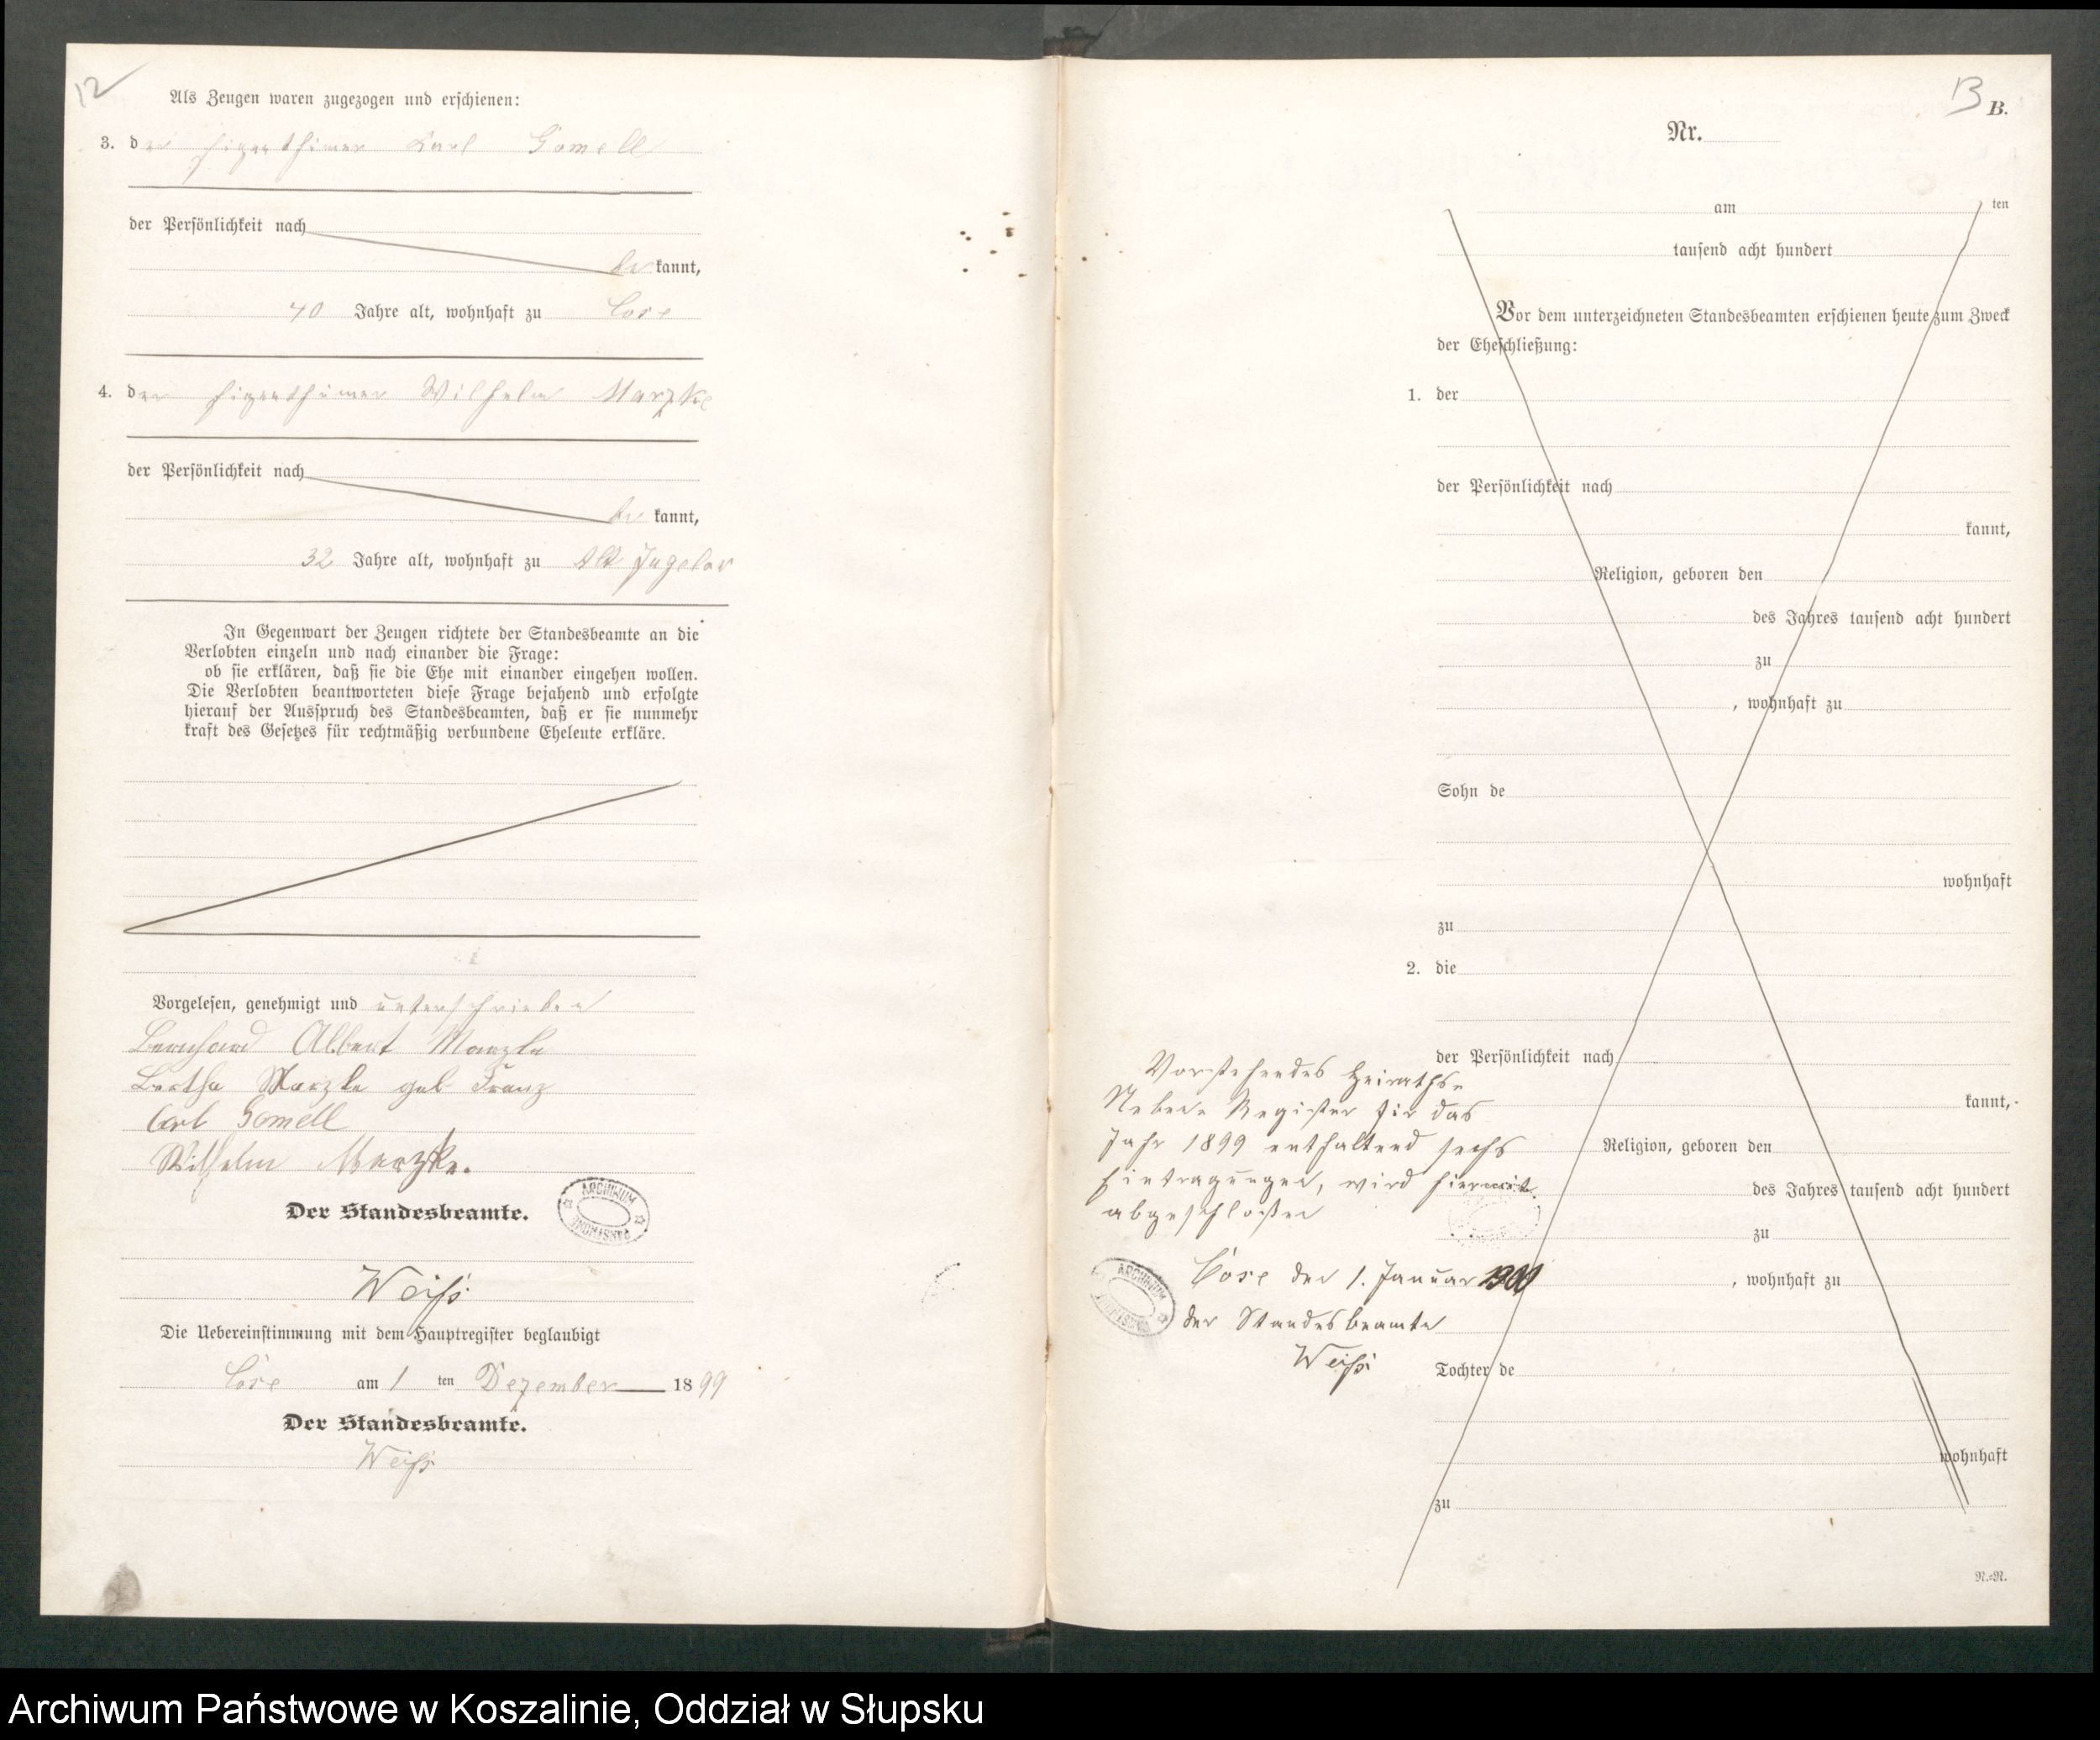 12
Als Zeugen waren zugezogen und erschienen:
3. der Eigenthümer Karl Gomell
der Persönlichkeit nach
be kannt,
40 Jahre alt, wohnhaft zu Cose
4. der Eigenthümer Wilhelm Marzke
der Persönlichkeit nach
be kannt,
32 Jahre alt, wohnhaft zu Alt Jugelow
In Gegenwart der Zeugen richtete der Standesbeamte an die
Verlobten einzeln und nach einander die Frage:
ob sie erklären, daß sie die Ehe mit einander eingehen wollen.
Die Verlobten beantworteten diese Frage bejahend und erfolgte
hierauf der Ausspruch des Standesbeamten, daß er sie nunmehr
kraft des Gesetzes für rechtmäßig verbundene Eheleute erkläre.
Vorgelesen, genehmigt und unterschrieben
Bernhard Albert Marzke
Bertha Marzke geb Franz
Carl Gomell
Wilhelm Marzke.
Der Standesbeamte.
ARCHIWUM
Weiß
Die Uebereinstimmung mit dem Hauptregister beglaubigt
Cose am 1 ten Dezember 1899
Der Standesbeamte.
Weiß
13
B.
Nr.
am ten
tausend acht hundert
Vor dem unterzeichneten Standesbeamten erschienen heute zum Zweck
der Eheschließung:
1. der
der Persönlichkeit nach
kannt,
Religion, geboren den
des Jahres tausend acht hundert
zu
, wohnhaft zu
Sohn de
wohnhaft
zu
2. die
der Persönlichkeit nach
kannt,
Religion, geboren den
des Jahres tausend acht hundert
zu
, wohnhaft zu
Tochter de
wohnhaft
zu
N.=N.
Vorstehendes Heiraths-
Neben Register für das
Jahr 1899 enthaltend sechs
Eintragungen, wird hiermit
abgeschloßen
Cose den 1. Januar 1900
der Standesbeamte
Weiß
ARCHIWUM
Archiwum Państwowe w Koszalinie, Oddział w Słupsku